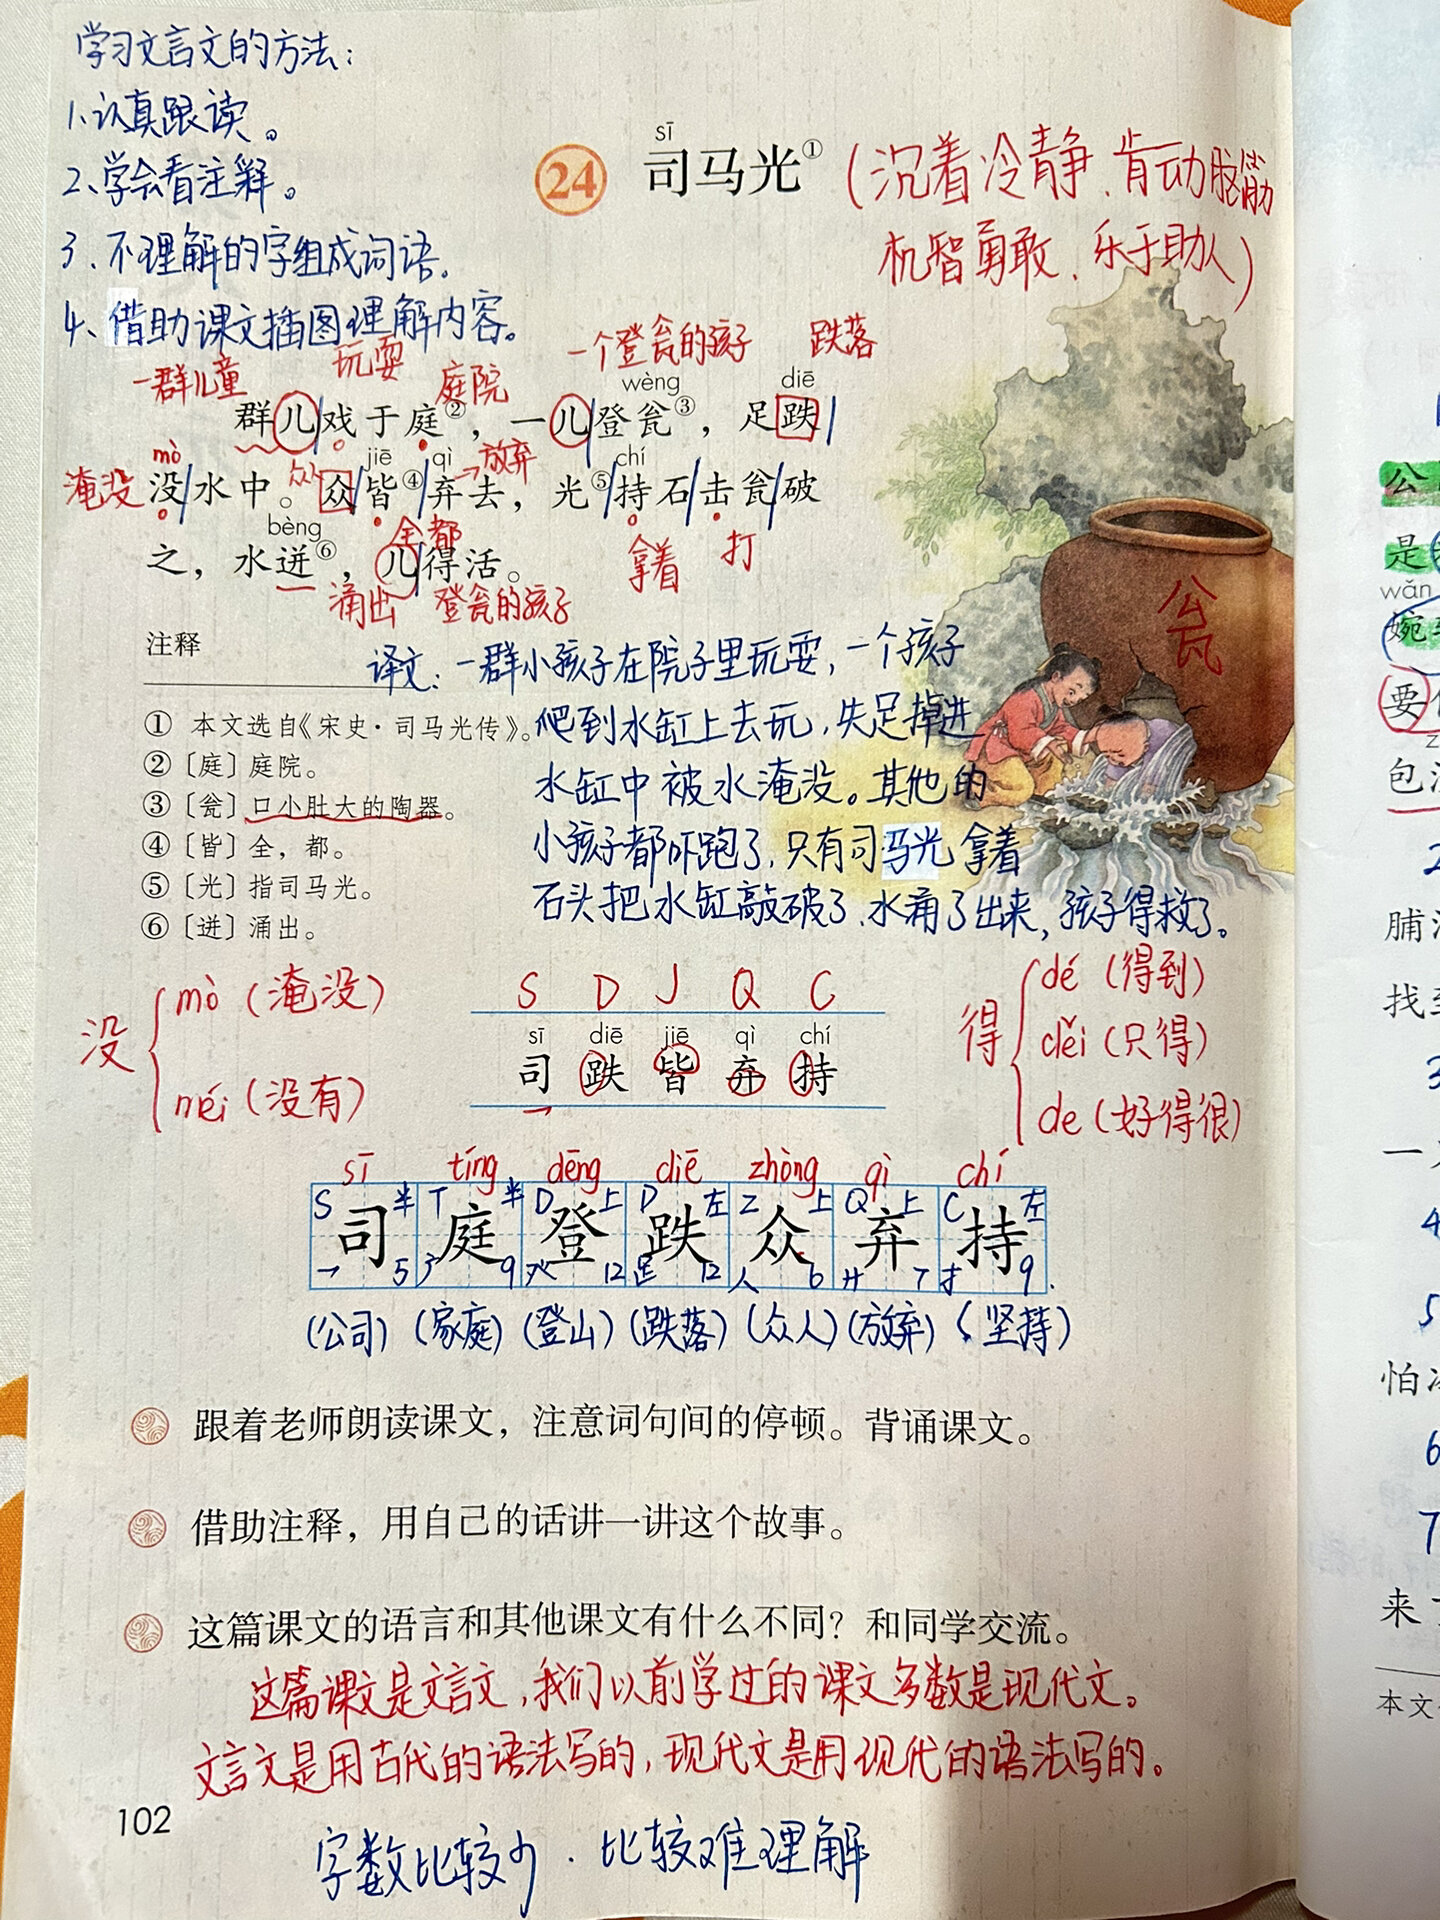 学习文言文的方法：
1、认真跟读。
2、学会看注释。
3、不理解的字组成词语。
4、借助课文插图理解内容。
sī
24 司马光①
(沉着冷静、肯动脑筋
机智勇敢、乐于助人)
一群儿童 玩耍 庭院 一个登瓮的孩子 跌落
wèng diē
群儿戏于庭②，一儿登瓮③，足跌
mò 众人 jiē qì 放弃 chí
淹没 没水中。众皆④弃去，光⑤持石击瓮破
bèng 全都 拿着 打
之，水迸⑥，儿得活。
涌出 登瓮的孩子
瓮
注释
① 本文选自《宋史·司马光传》。
②〔庭〕庭院。
③〔瓮〕口小肚大的陶器。
④〔皆〕全，都。
⑤〔光〕指司马光。
⑥〔迸〕涌出。
译文：一群小孩子在院子里玩耍，一个孩子
爬到水缸上去玩，失足掉进
水缸中被水淹没。其他的
小孩子都吓跑了，只有司马光拿着
石头把水缸敲破了，水涌了出来，孩子得救了。
没
mò (淹没)
méi (没有)
S D J Q C
sī diē jiē qì chí
司 跌 皆 弃 持
得
dé (得到)
děi (只得)
de (好得很)
sī tíng dēng diē zhòng qì chí
S 半 T 半 D 上 D 左 Z 上 Q 上 C 左
司 庭 登 跌 众 弃 持
㇕ 5 广 9 癶 12 ⻊ 12 人 6 廾 7 扌 9
(公司) (家庭) (登山) (跌落) (众人) (放弃) (坚持)
跟着老师朗读课文，注意词句间的停顿。背诵课文。
借助注释，用自己的话讲一讲这个故事。
这篇课文的语言和其他课文有什么不同？和同学交流。
这篇课文是文言文，我们以前学过的课文多数是现代文。
文言文是用古代的语法写的，现代文是用现代的语法写的。
102
字数比较少．比较难理解
公
是
wǎn
婉
要
包
2
脯
找
3
一
4
5
怕
6
7
来
本文